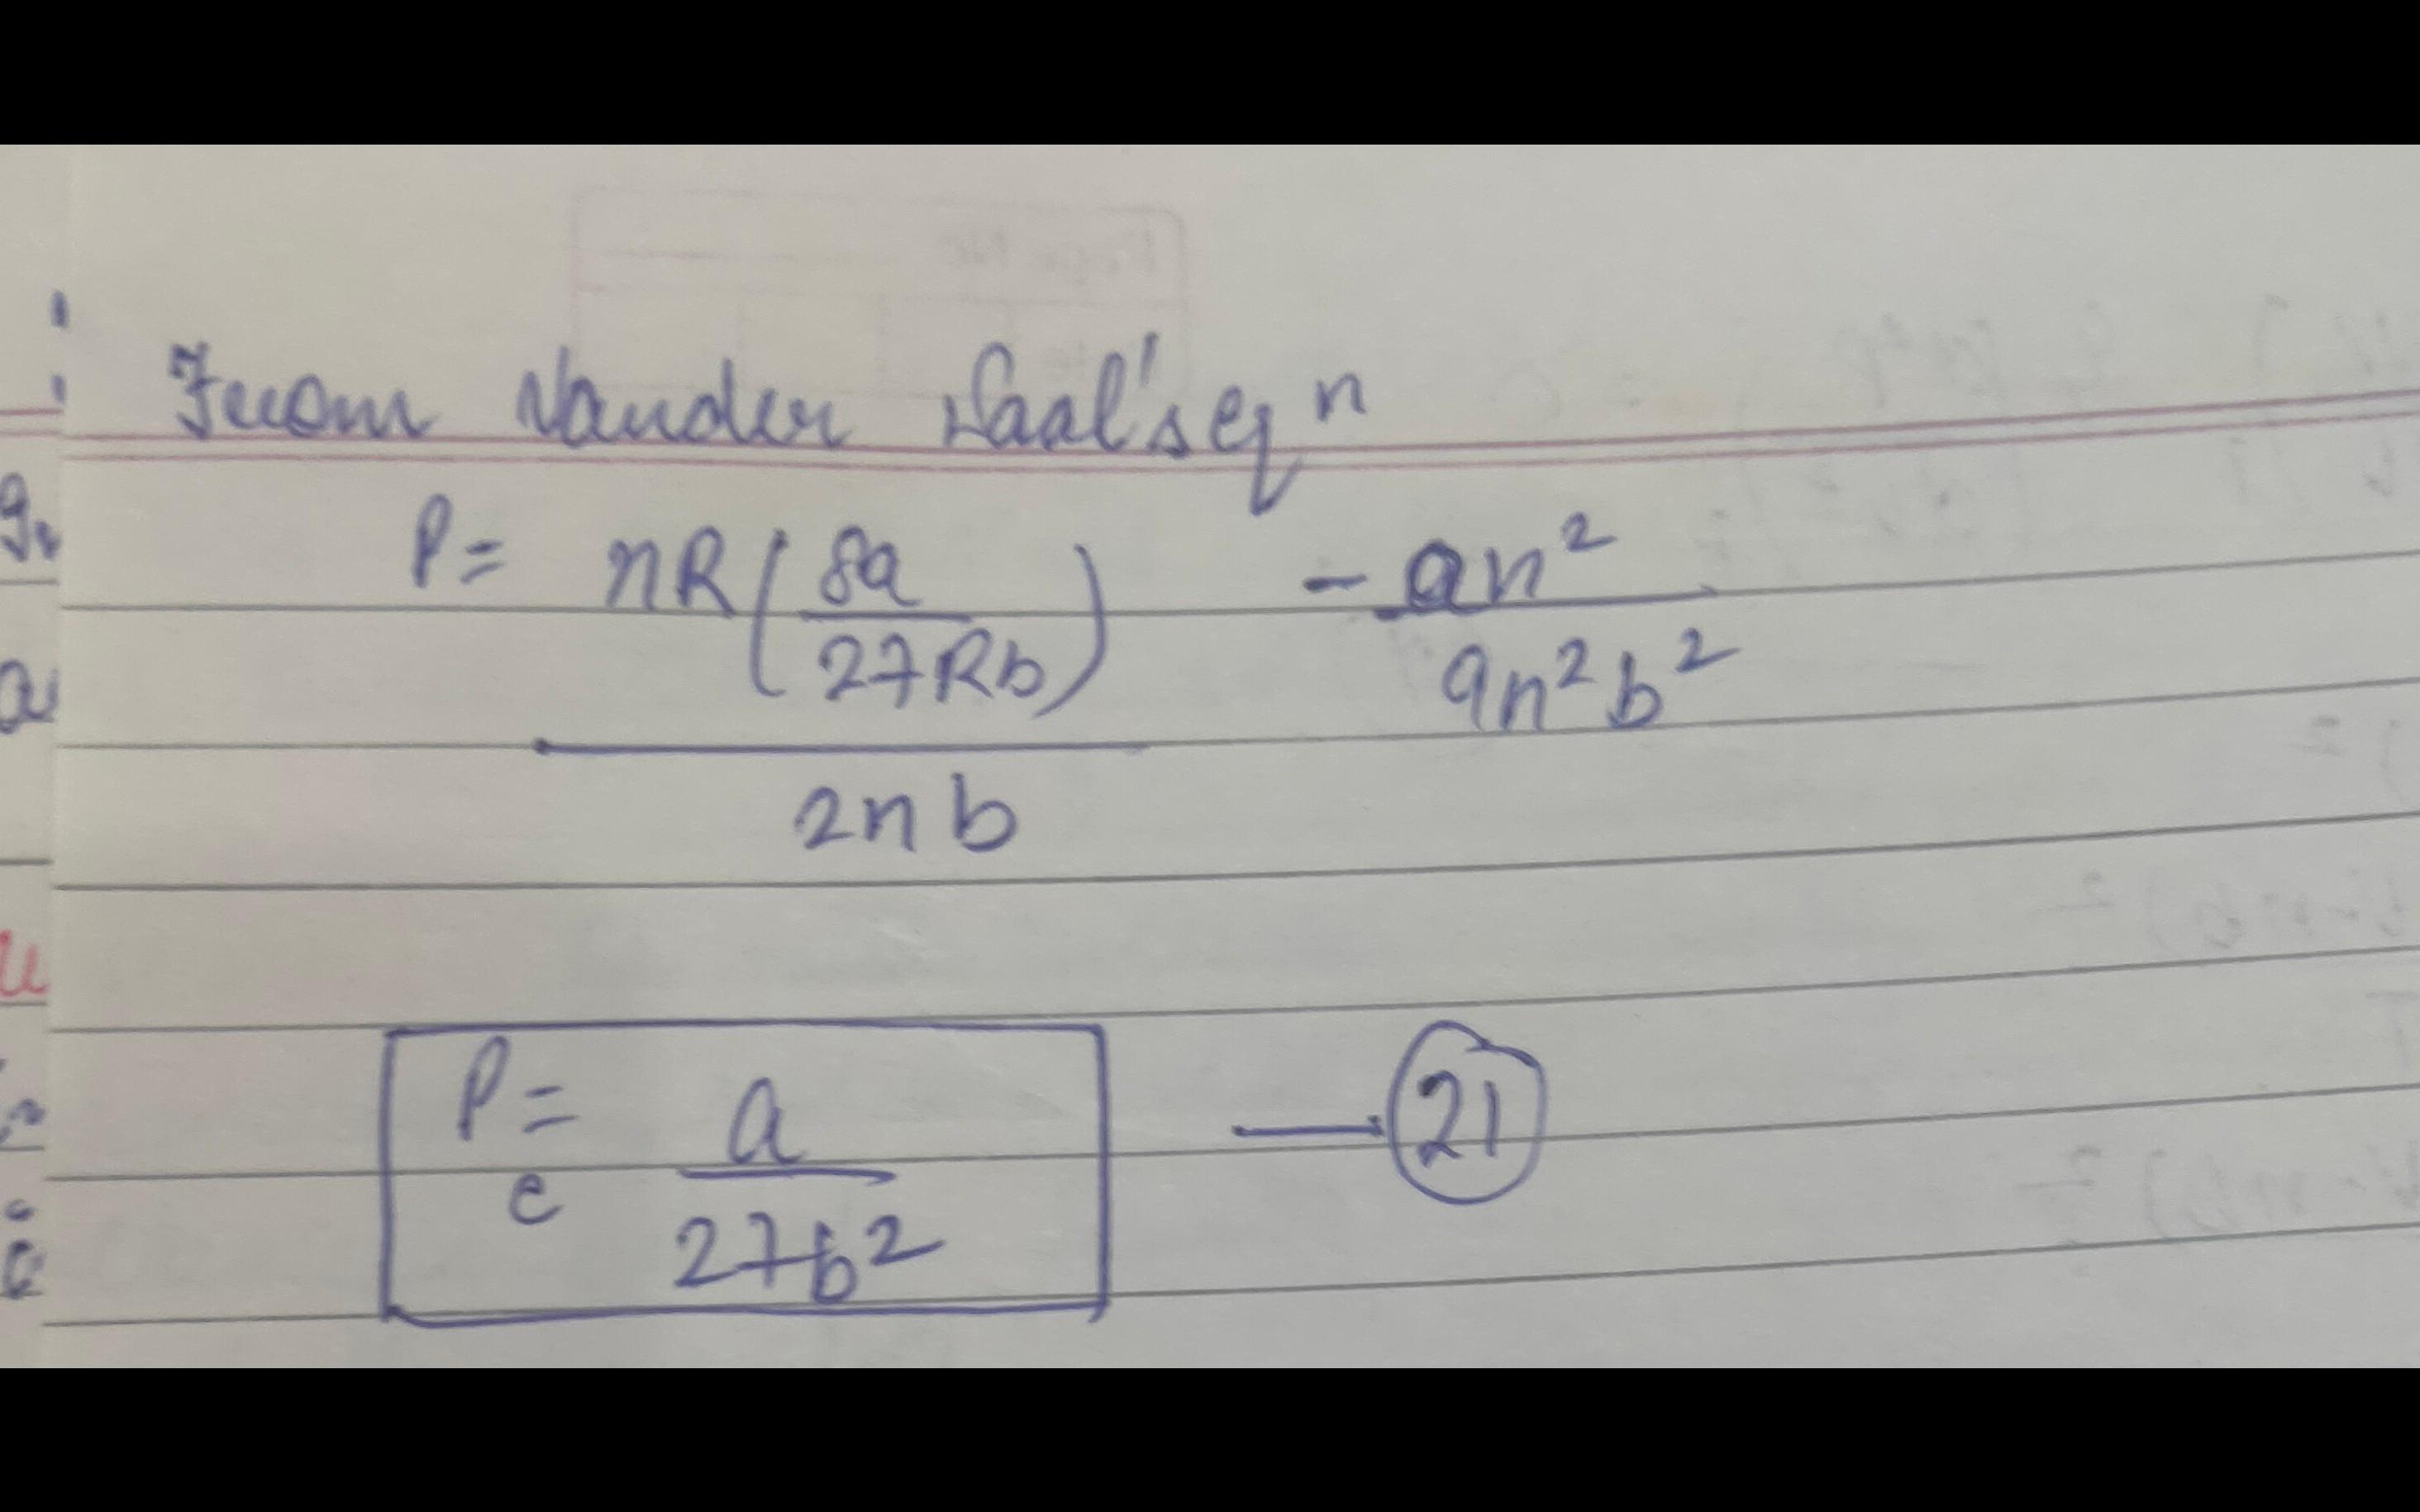 From Vander Waal's eqn
P = nR(8a/27Rb) / 2nb - an²/9n²b²
Pc = a/27b² — 21